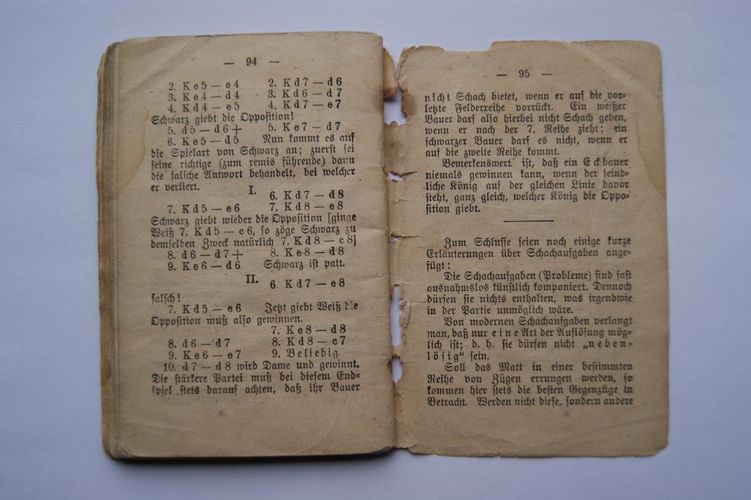 — 94 —
2. Ke5—e4 2. Kd7—d6
3. Ke4—d4 3. Kd6—d7
4. Kd4—e5 4. Kd7—e7
Schwarz giebt die Opposition!
5. d5—d6+ 5. Ke7—d7
6. Ke5—d5 Nun kommt es auf
die Spielart von Schwarz an; zuerst sei
seine richtige (zum remis führende) dann
die falsche Antwort behandelt, bei welcher
er verliert.
I.
6. Kd7—d8
7. Kd5—e6 7. Kd8—e8
Schwarz giebt wieder die Opposition [ginge
Weiß 7. Kd5—c6, so zöge Schwarz zu
demselben Zweck natürlich 7. Kd8—c8]
8. d6—d7+ 8. Ke8—d8
9. Ke6—d6 Schwarz ist patt.
II.
6. Kd7—e8
falsch!
7. Kd5—e6 Jetzt giebt Weiß die
Opposition muß also gewinnen.
7. Ke8—d8
8. d6—d7 8. Kd8—c7
9. Ke6—e7 9. Beliebig
10. d7—d8 wird Dame und gewinnt.
Die stärkere Partei muß bei diesem End-
spiel stets darauf achten, daß ihr Bauer
— 95 —
nicht Schach bietet, wenn er auf die vor-
letzte Felderreihe vorrückt. Ein weißer
Bauer darf also hierbei nicht Schach geben,
wenn er nach der 7. Reihe zieht; ein
schwarzer Bauer darf es nicht, wenn er
auf die zweite Reihe kommt.
Bemerkenswert ist, daß ein Eckbauer
niemals gewinnen kann, wenn der feind-
liche König auf der gleichen Linie davor
steht, ganz gleich, welcher König die Oppo-
sition giebt.
Zum Schlusse seien noch einige kurze
Erläuterungen über Schachaufgaben ange-
fügt:
Die Schachaufgaben (Probleme) sind fast
ausnahmslos künstlich komponiert. Dennoch
dürfen sie nichts enthalten, was irgendwie
in der Partie unmöglich wäre.
Von modernen Schachaufgaben verlangt
man, daß nur eine Art der Auflösung mög-
lich ist; d. h. sie dürfen nicht „neben-
lösig“ sein.
Soll das Matt in einer bestimmten
Reihe von Zügen errungen werden, so
kommen hier stets die besten Gegenzüge in
Betracht. Werden nicht diese, sondern andere